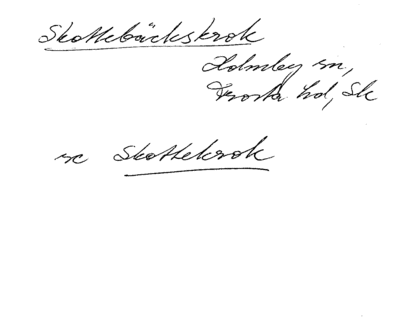 Skottebäckskrok
Holmby sn,
Frosta hd, Sk
se Skottekrok